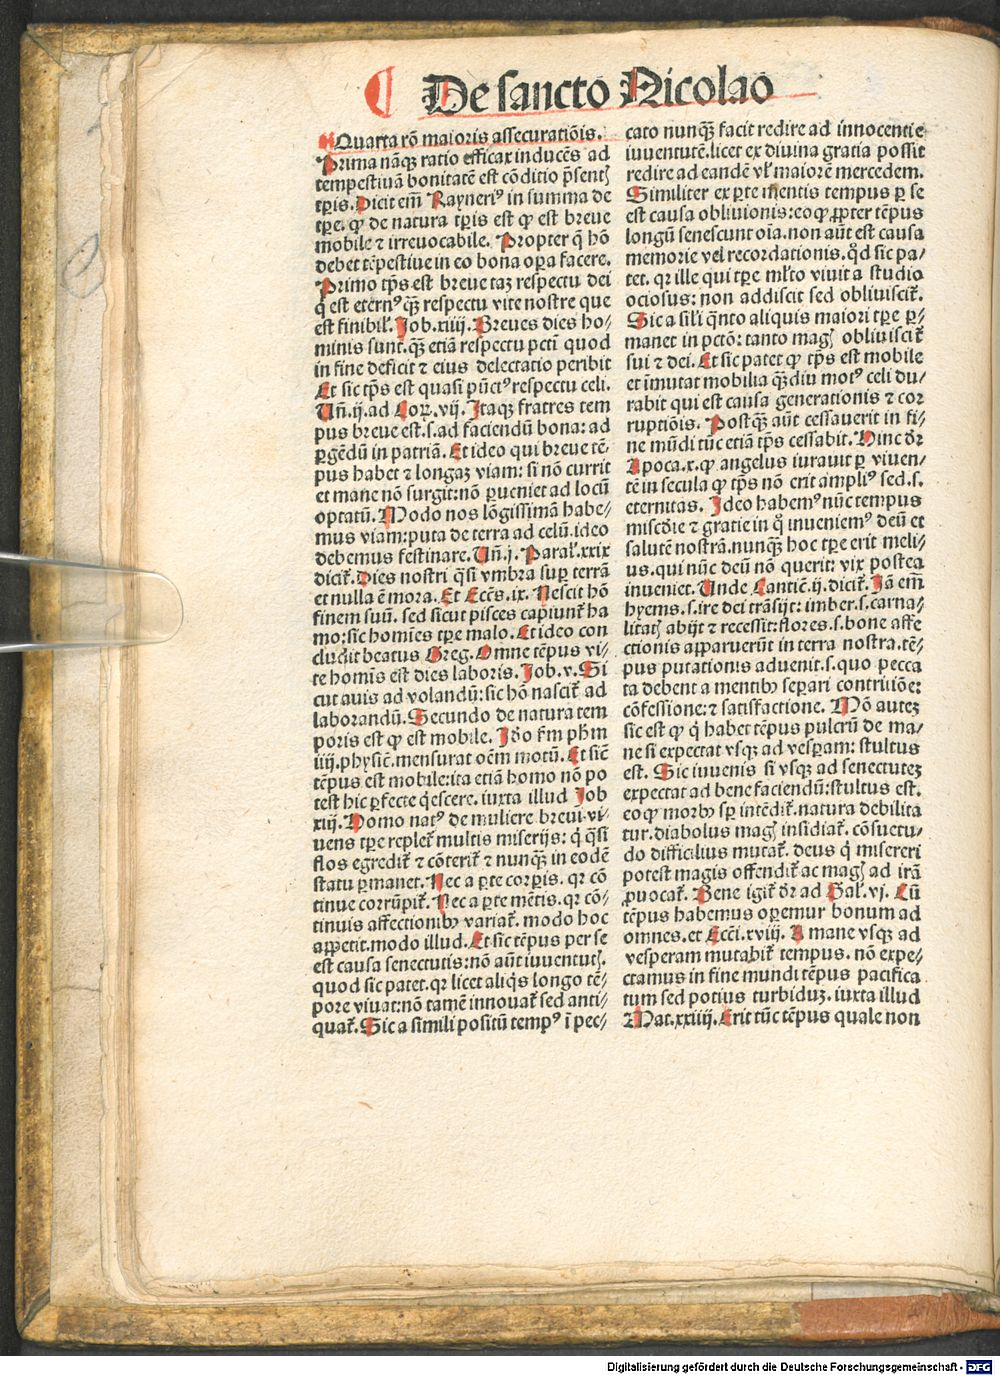 De sancto Nicolao
Quarta rõ maioris assecuratiõis.
Prima nãqꝫ ratio efficax inducẽs ad
tempestiuã bonitatẽ est cõditio p̃sentꝭ
tꝑis. Dicit em̃ Raynerꝰ in summa de
tꝑe. ꝙ de natura tꝑis est ꝙ est breue
mobile ⁊ irreuocabile. Propter q̃ hõ
debet tẽpestiue in eo bona oꝑa facere.
Primo tp̃s est breue taꝫ respectu dei
q̇ est eternꝰ qꝫ̃ respectu vite nostre que
est finibil̃. Job.xiiij. Breues dies ho⸗
minis sunt.qꝫ̃ etiã respectu pctĩ quod
in fine deficit ⁊ eius delectatio peribit
Et sic tp̃s est quasi pũctꝰ respectu celi.
Uñ.ij.ad Coꝝ.vij. Itaqꝫ fratres tem
pus breue est.s.ad faciendũ bona: ad
ꝑgẽdũ in patriã. Et ideo qui breue tẽ⸗
pus habet ⁊ longaꝫ viam: si nõ currit
et mane nõ surgit:nõ ꝑueniet ad locũ
optatũ. Modo nos lõgissimã habe⸗
mus viam:puta de terra ad celũ.ideo
debemus festinare. Uñ.j. Paral̃.xxix
dicit̃. Dies nostri q̃si vmbra suꝑ terrã
et nulla ẽ mora. Et Eccs̃.ix. Nescit hõ
finem suũ. sed sicut pisces capiunt̃ ha
mo:sic homĩes tꝑe malo. Et ideo con
cludit beatus Greg. Omne tẽpus vi⸗
te homis est dies laboris. Job.v. Si
cut auis ad volandũ:sic hõ nascit̃ ad
laborandũ. Secundo de natura tem
poris est ꝙ est mobile. Iđo fm̃ phm̃
iiij.physic̃.mensurat oẽm motũ. Et sic̃
tẽpus est mobile:ita etiã homo nõ po
test hic ꝑfecte q̇escere. iuxta illud Job
xiij. Homo natꝰ de muliere breui vi⸗
uens tꝑe replet̃ multis miserijs: q̇ q̃si
flos egredit̃ ⁊ cõterit̃ ⁊ nunqꝫ̃ in eodẽ
statu ꝑmanet. Nec a ꝑte corꝑis. qr cõ
tinue corrũpit̃. Nec a ꝑte mẽtis.qr cõ⸗
tinuis affectionibꝰ variat̃. modo hoc
apꝑetit.modo illud. Et sic tẽpus per se
est causa senectutis:nõ aũt iuuentutꝭ.
quod sic patet.qr licet aliq̇s longo tẽ⸗
pore viuat:nõ tamẽ innouat̃ sed anti⸗
quat̃. Sic a simili positũ tempꝰ ĩ pec⸗
cato nunqꝫ̃ facit redire ad innocentie
iuuentutẽ.licet ex diuina gratia possit
redire ad eandẽ vl̃ maiorẽ mercedem.
Similiter ex ꝑte mentis tempus ꝑ se
est causa obliuionis:eo ꝙ ꝓpter tẽpus
longũ senescunt oĩa.non aũt est causa
memorie vel recordationis.qđ sic pa⸗
tet. qr ille qui tꝑe ml̃to viuit a studio
ociosus: non addiscit sed obliuiscit̃.
Sic a sil̃i q̃nto aliquis maiori tꝑe ꝑ⸗
manet in pctõ: tanto magꝭ obliuiscit̃
sui ⁊ dei. Et sic patet ꝙ tp̃s est mobile
et imutat mobilia qꝫ̃diu motꝰ celi du⸗
rabit qui est causa generationis ⁊ cor
ruptiõis. Postqꝫ̃ aũt cessauerit in fi⸗
ne mũdi tũc etiã tp̃s cessabit. Hinc dr̃
Apoca.x.ꝙ angelus iurauit ꝑ viuen⸗
tẽ in secula ꝙ tp̃s nõ erit ampliꝰ sed.s.
eternitas. Ideo habemꝰ nũc tempus
miscđie ⁊ gratie in q̊ inueniemꝰ deũ et
salutẽ nostrã.nunqꝫ̃ hoc tꝑe erit meli⸗
us.qui nũc deũ nõ querit: vix postea
inueniet. Unde Cantic̃.ij.dicit̃. Jã em̃
hyems.s.ire dei trãsijt: imber.s.carna⸗
litatꝭ abijt ⁊ recessit:flores.s.bone affe
ctionis apparuerũt in terra nostra.tẽ⸗
pus putationis aduenit.s.quo pecca
ta debent a mentibꝰ seꝑari contritiõe:
cõfessione:⁊ satisfactione. Mõ auteꝫ
sic est ꝙ q̇ habet tẽpus pulcrũ de ma⸗
ne si expectat vsqꝫ ad vesꝑam: stultus
est. Sic iuuenis si vsqꝫ ad senectuteꝫ
expectat ad bene faciendũ:stultus est.
eo ꝙ morbꝰ sꝑ intẽdit̃.natura debilita
tur.diabolus magꝭ insidiat̃. cõsuetu⸗
do difficilius mutat̃. deus q̇ misereri
potest magis offendit̃ ac magꝭ ad irã
ꝓuocat̃. Bene igit̃ dr̃ ad Gal̃.vj. Cũ
tẽpus habemus oꝑemur bonum ad
omnes.et Ecci̇.xviij. A mane vsqꝫ ad
vesperam mutabit̃ tempus. nõ expe⸗
ctamus in fine mundi tẽpus pacifica
tum sed potius turbiduꝫ. iuxta illud
Mat.xxiiij. Erit tũc tẽpus quale non
Digitalisierung gefördert durch die Deutsche Forschungsgemeinschaft - DFG